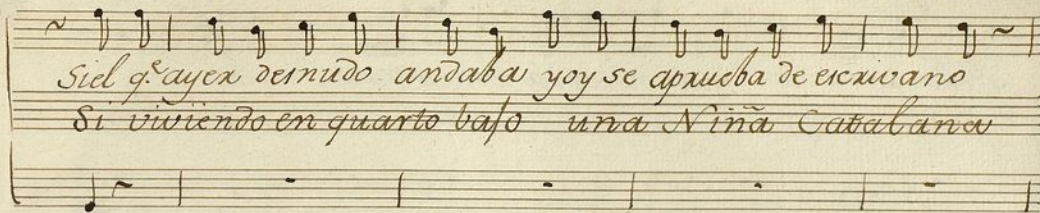 Siel q.e ayer desnudo andaba yoy se aprueba de escrivano
Si viviendo en quarto bajo una Niña Catalana